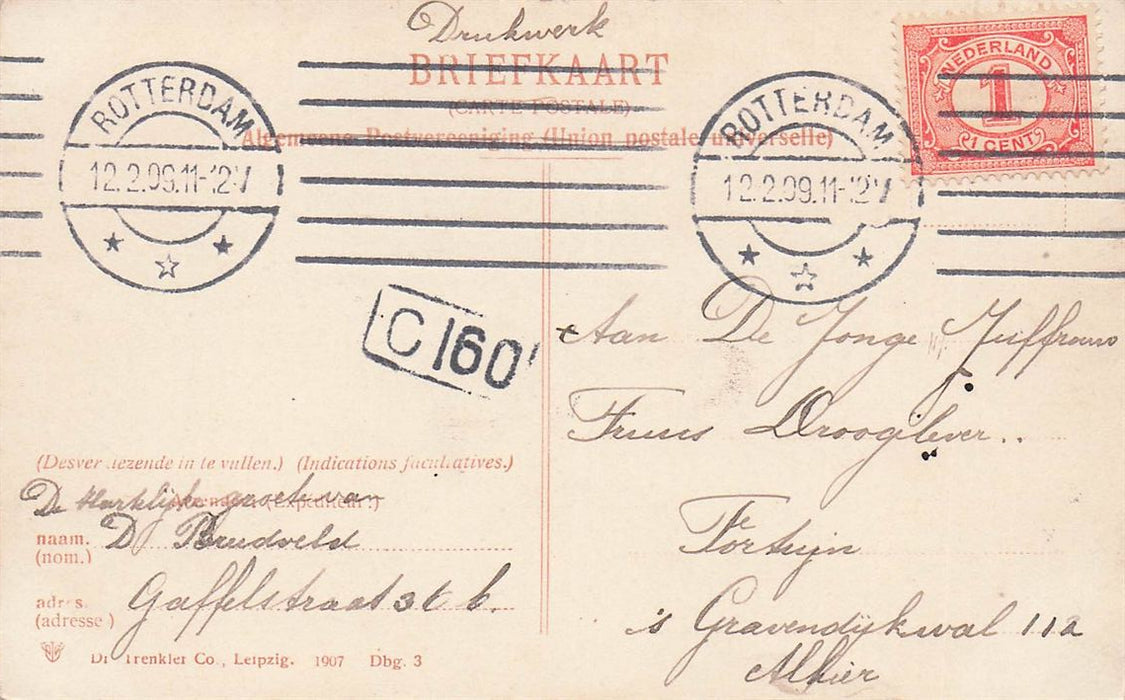 Drukwerk
BRIEFKAART
(CARTE POSTALE)
Algemeene Postvereeniging (Union postale universelle)
NEDERLAND
1
1 CENT
ROTTERDAM
12.2.09.11-12V
ROTTERDAM
12.2.09.11-12V
C 160
Aan De Jonge Juffrouw
Truus Drooglever..
Fortuijn
's Gravendijkwal 112
Alhier
(Desverkiezende in te vullen.) (Indications facultatives.)
De Hartelijke groete van
Afzender. (Expediteur.)
naam. D Breedveld
(nom.)
adres. Gaffelstraat 36 b.
(adresse)
Dr Trenkler Co., Leipzig. 1907 Dbg. 3